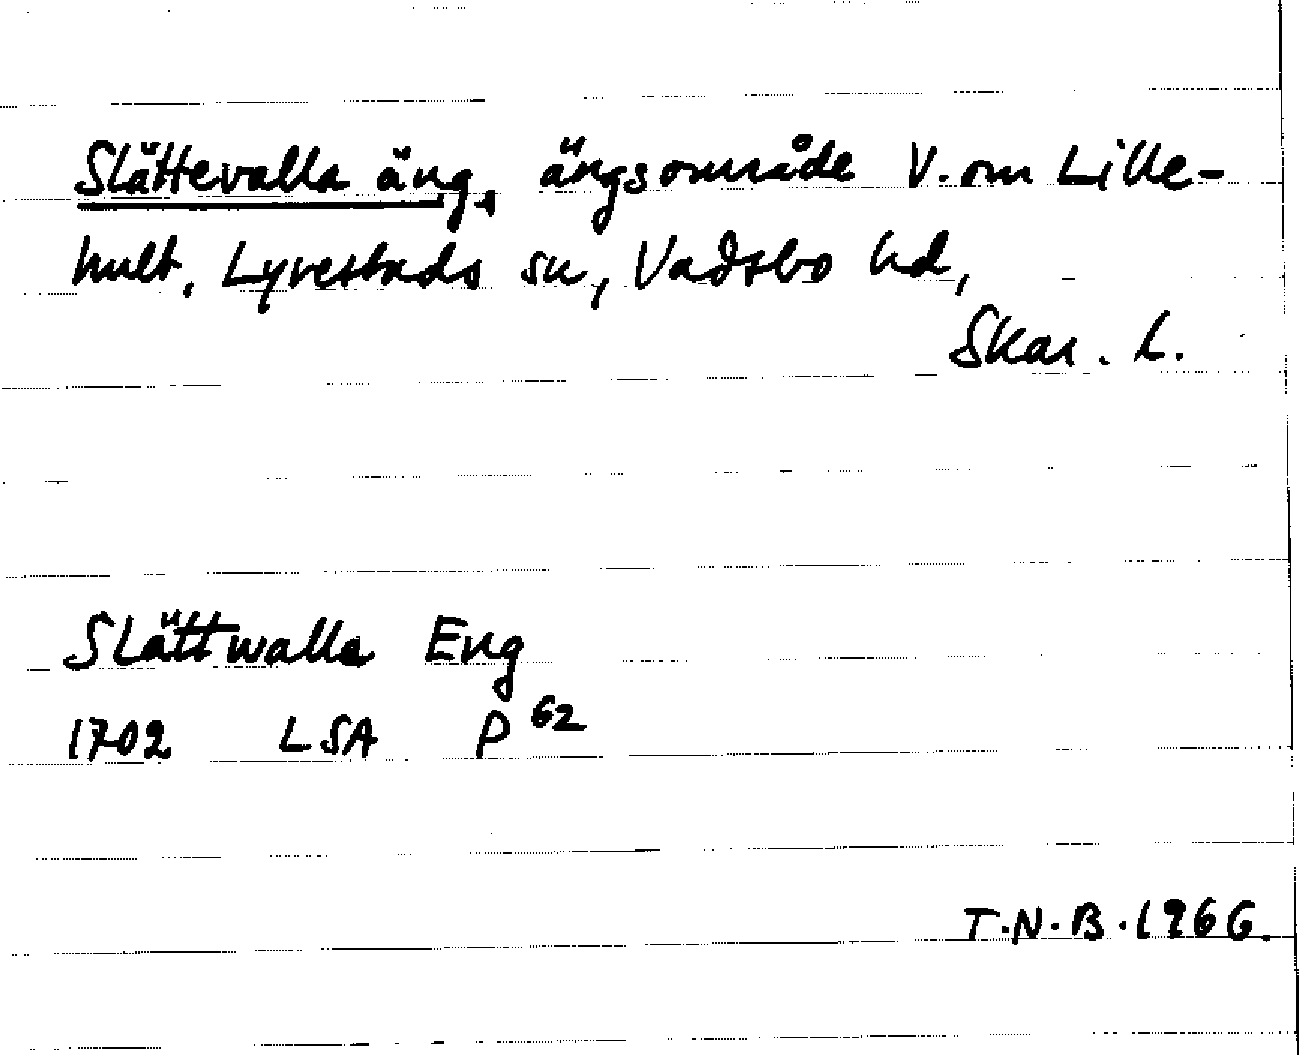 Slättevalla äng, ängsområde V. om Lille-
hult, Lyrestads sn, Vadsbo hd,
Skar. l.
Slättwalla Eng
1702 LSA P 62
T.N.B. 1966.